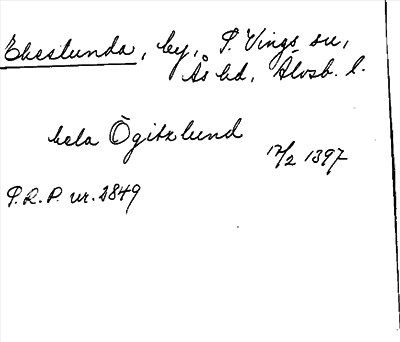 Ekeslunda, by, S. Vings sn,
Ås hd, Älvsb. l.
hela Ögitzlund
17/2 1397
S.R.P. nr. 2849